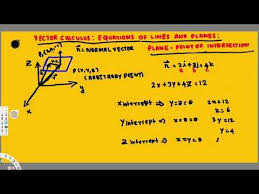 VECTOR CALCULUS: EQUATIONS OF LINES AND PLANES:
PLANE - POINT OF INTERSECTION
n = NORMAL VECTOR
P(x,y,z)
(ARBITRARY POINT)
n = 2i + 3j + 4k
2x + 3y + 4z = 12
x intercept ⇒ y = z = 0 2x = 12
x = 6
y intercept ⇒ x = z = 0 3y = 12
y = 4
z intercept ⇒ x = y = 0
z
y
x